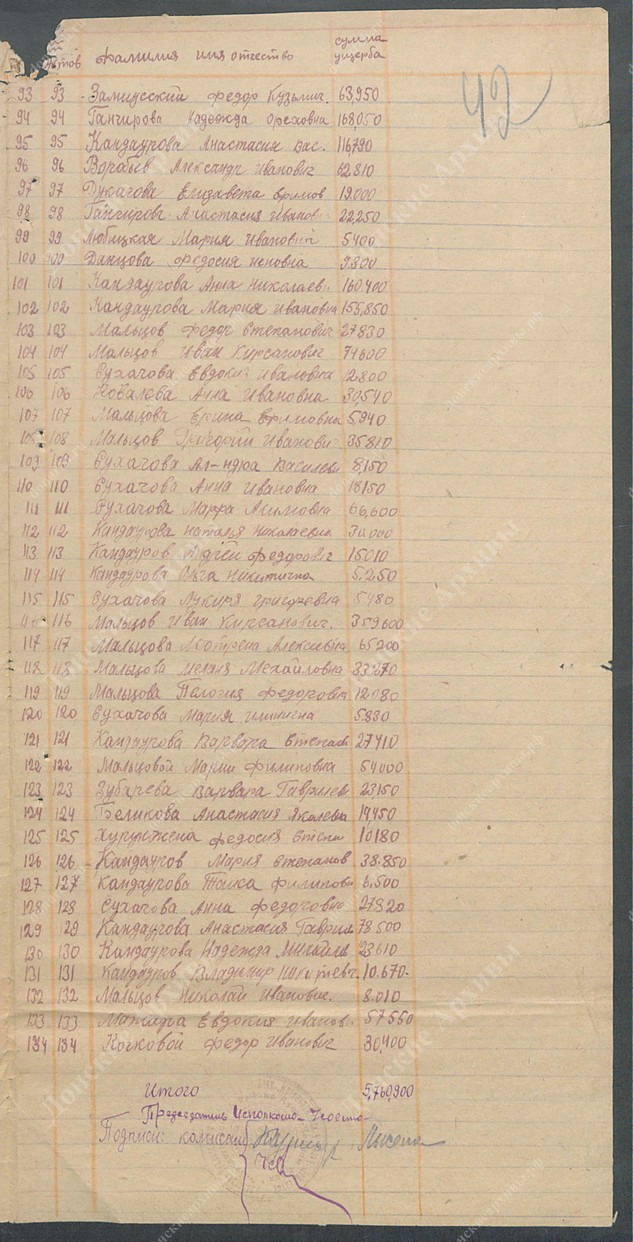 актов фамилия имя отчество сумма ущерба
42
93 93 Замчусский Федор Кузьмич. 63,950
94 94 Гангирова Надежда 168,050
95 95 Кандаурова Анастасия Вас. 116790
96 96 Воробьев Александр Иванович 62810
97 97 Елизавета Ефимов 19.000
98 98 Гангиров Анастасия Иванов 22,250
99 99 Любицкая Мария Ивановна 5400
100 100 Данцова Федосия 9800
101 101 Кандаурова Анна Николаев. 160400
102 102 Кандаурова Мария Ивановна 155,850
103 103 Мальцов Федор Степанович 27830
104 104 Мальцов Иван Кирсанович 74600
105 105 Сухачова Евдокия Ивановна 12.800
106 106 Ковалева Анна Ивановна 30,540
107 107 Мальцова Ерина Ефимовна 5940
108 108 Мальцов Григорий Иванович 35810
109 109 Сухачова Ал-ндра Василев 8,150
110 110 Сухачова Анна Ивановна 18150
111 111 Сухачова Марфа Акимовна 66,600
112 112 Кандаурова Наталья Николаевна 30000
113 113 Кандауров Федорович 15010
114 114 Кандаурова Ольга Никитична 5.250
115 115 Сухачова Лукиря Григоревна 5480
116 116 Мальцов Иван Кирсанович. 359600
117 117 Мальцова Алексевна 65200
118 118 Мальцова Мехайловна 33270
119 119 Мальцова Пелогия Федоровна 12080
120 120 Сухачова Мария 5830
121 121 Кандаурова Варвара Степан 27410
122 122 Мальцовой Марии Филиповна 54000
123 123 Зубарева Варвара Гаврилев 23150
124 124 Беликова Анастасия Яковлевна 14450
125 125 Федосия Степан 10180
126 126 Кандауров Мария Степанов 38.850
127 127 Кандаурова Филипов 6.500
128 128 Сухачова Анна Федоровна 27920
129 129 Кандаурова Анастасия Гаврил 78500
130 130 Кандаурова Надежда Михайл 23610
131 131 Кандауров Владимир 10.670.
132 132 Мальцов Николай Иванович. 8.010
133 133 Евдокия Иванов. 57550
134 134 Кочковой Федор Иванович 30,400
Итого 5,760,900
Председатель Исполкома
Подписи: комисии